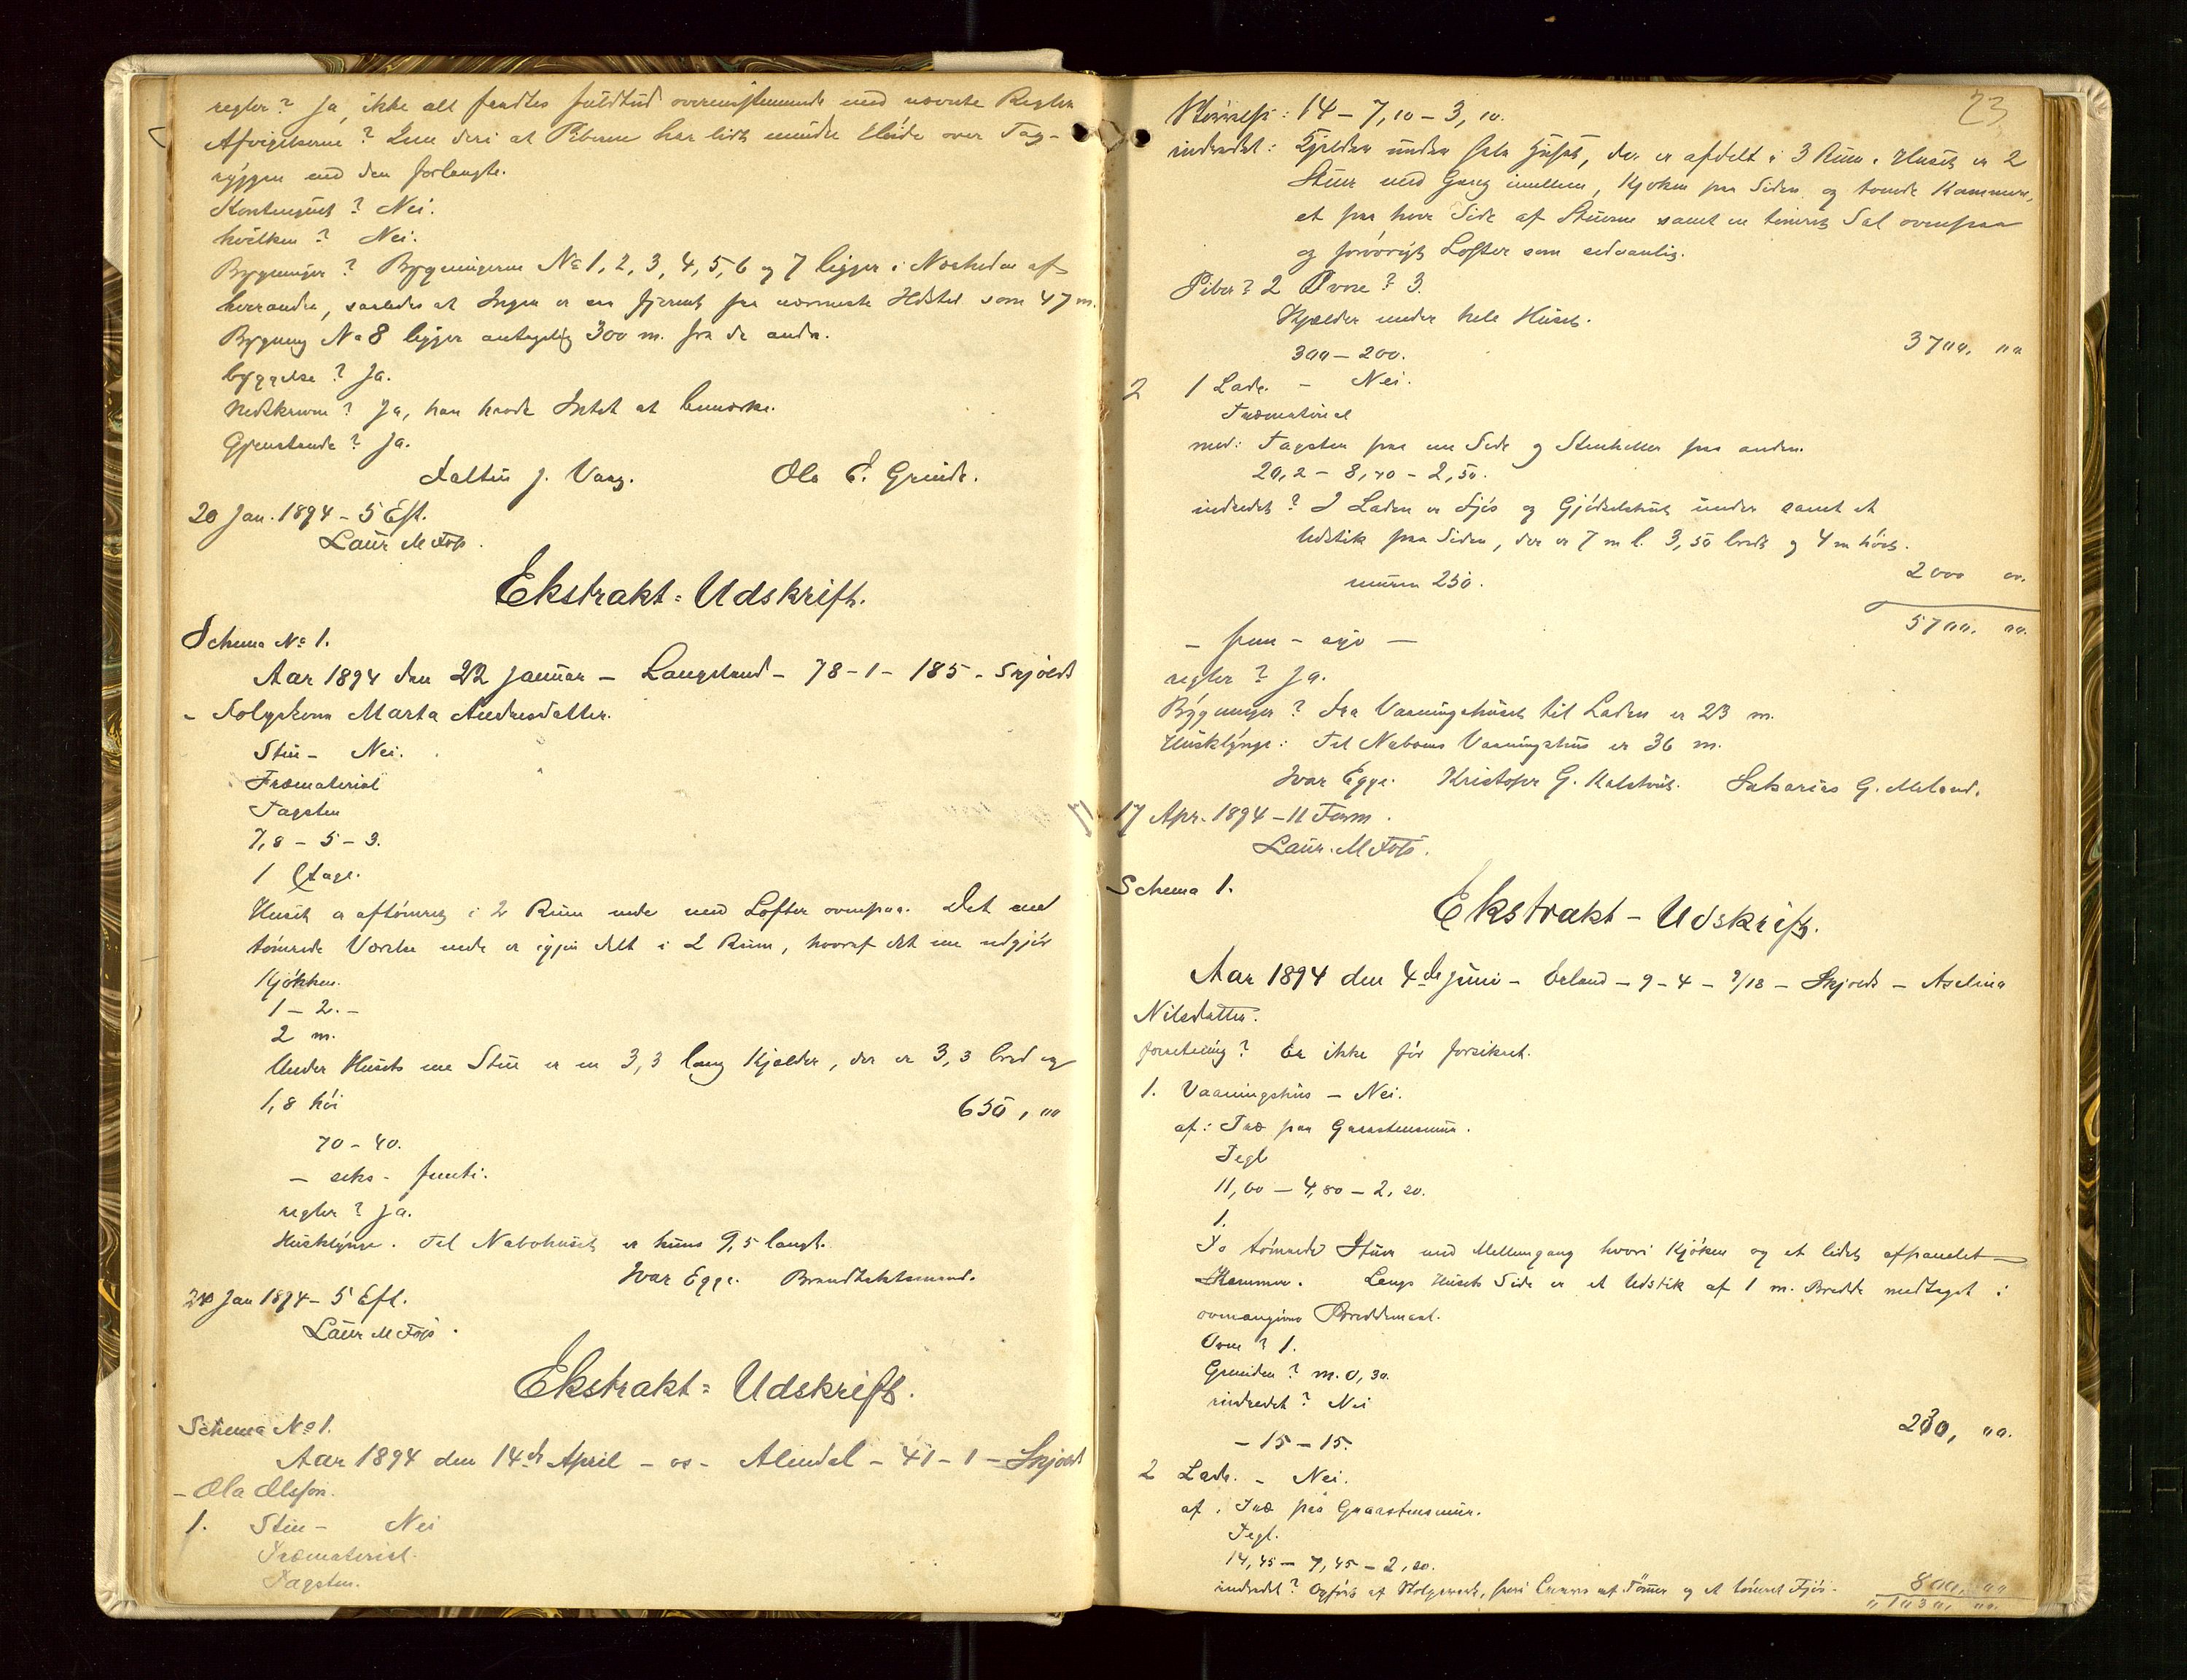 regler? Ja, ikke alt fandtes fuldtud overensstemmende med nævnte Regler
Afvigelserne? Kun deri at Piberne har lidt mindre Høide over Tag-
ryggen end den forlangte.
Kontingent? Nei.
hvilken? Nei.
Bygninger? Bygningerne No 1, 2, 3, 4, 5, 6 og 7 ligger i Nærheden af
hverandre, saaledes at Ingen er saa fjernt fra nærmeste Hdstel som 47 m.
Bygning No 8 ligger antagelig 300 m. fra de andre.
byggelse? Ja.
Nedskrevne? Ja, han havde Intet at bemærke.
Gjenstande? Ja.
Faltin J. Vaag. Ola E. Grinde.
20 Jan. 1894 - 5 Eft.
Laur M Foss.
Ekstrakt-Udskrift.
Schema No 1.
Aar 1894 den 22 januar - Langeland - 78-1-185 - Skjold
- Folgekone Marta Andreasdatter.
Stue - Nei.
Træmaterial
Tagsten
7,8 - 5 - 3.
1 Etage.
Huset er aftømret i 2 Rum nede med Lofter ovenpaa. Det ene
tømrede Værelse nede er igjen delt i 2 Rum, hvoraf det ene udgjør
Kjøkken.
1 - 2. -
2 m.
Under Husets ene Stue er en 3,3 lang Kjelder, der er 3,3 bred og
1,8 høi 650,00
70 - 40.
- seks - femti.
regler? Ja.
Husklynge. Til Nabohuset er kuns 9,5 langt.
Ivar Egge. Brandtakstmand.
24 Jan 1894 - 5 Eft.
Laur M Foss.
Ekstrakt-Udskrift.
Schema No 1.
Aar 1894 den 14de April - os - Alendal - 41-1 - Skjold
- Ola Olsson.
1. Stue - Nei
Træmaterial.
Tagsten.
23
Størrelse: 14 - 7,10 - 3,10.
indredet: Kjelder under hele Huset, der er afdelt i 3 Rum. Huset er 2
Stuer med Gang imellem, Kjøken paa Siden og tvende Kammere,
et paa hver Side af Stuerne samt en tømret Sal ovenpaa
og forøvrigt Lofter som sedvanlig.
Piber? 2 Ovne? 3.
Kjelder under hele Huset.
300 - 200. 3700,00
2 1 Lade. - Nei.
Træmaterial
med: Tagsten paa en Side og Stenheller paa anden.
20,2 - 8,40 - 2,50.
indredet? I Laden er Fjøs og Gjødselshus under samt et
Udstik paa Siden, der er 7 m l. 3,50 bredt og 4 m høit.
muren 250. 2000 00.
5700,00.
- fem - syv -
regler? Ja.
Bygninger? Fra Vaaningshuset til Laden er 23 m.
Husklynge: Til Naboens Vaaningshus er 36 m.
Ivar Egge. Kristofer G. Kalstvedt. Sakarias G. Meland.
17 Apr. 1894 - 11 Form.
Laur. M Foss.
Schema 1.
Ekstrakt-Udskrift.
Aar 1894 den 4de juni - Erland - 9-4 - 9/18 - Skjold - Aselina
Nilsdatter.
forsikring? Er ikke før forsikret.
1. Vaaningshus - Nei.
af: Træ paa Graastensmur.
Tegl
11,00 - 4,80 - 2,20.
1.
To tømrede Stuer med Mellemgang hvori Kjøken og et lidet afpanelet
Kammer. Langs Husets Side er et Udstik af 1 m. Bredde medtaget i
ovenangivne Breddemaal.
Ovne? 1.
Grunden? m. 0,30.
indredet? Nei
- 15 - 15. 230,00.
2 Lade. - Nei.
af: Træ paa Graastensmur.
Tegl.
14,45 - 7,45 - 2,20.
indredet? Opført af Stolpeværk, hvori af Tømmer og et tømret Fjøs. 800,00
1030,00.